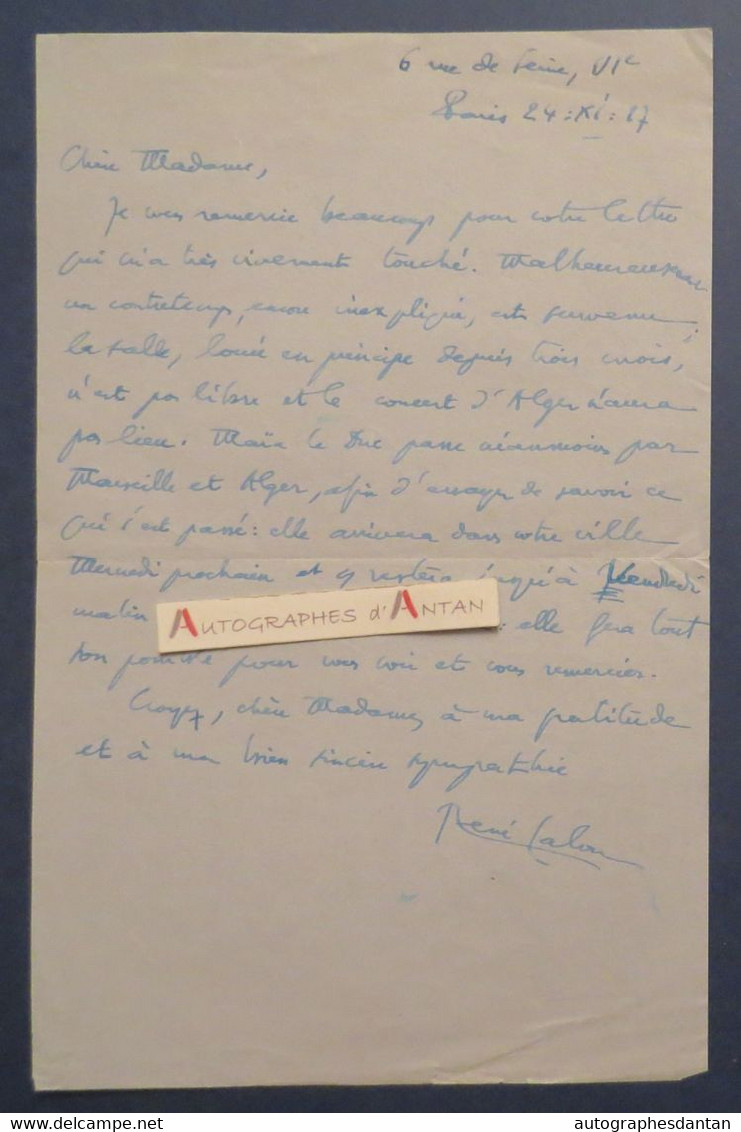 6 rue de Seine, VIe
Paris 24:XI:
Chère Madame,
Je vous remercie beaucoup pour votre lettre
qui m'a très vivement touché. Malheureusement
un contretemps, encore inexpliqué, est survenu;
la salle, louée en principe depuis trois mois,
n'est pas libre et le concert d'Alger n'aura
pas lieu. Maïa le Duc passe néanmoins par
Marseille et Alger, afin d'essayer de savoir ce
qui s'est passé: elle arrivera dans votre ville
Mercredi prochain et y restera jusqu'à Vendredi
matin : elle fera tout
AUTOGRAPHES d'ANTAN
son possible pour vous voir et vous remercier.
Croyez, chère Madame, à ma gratitude
et à ma bien sincère sympathie
René Lalou
delcampe.net
autographesdantan